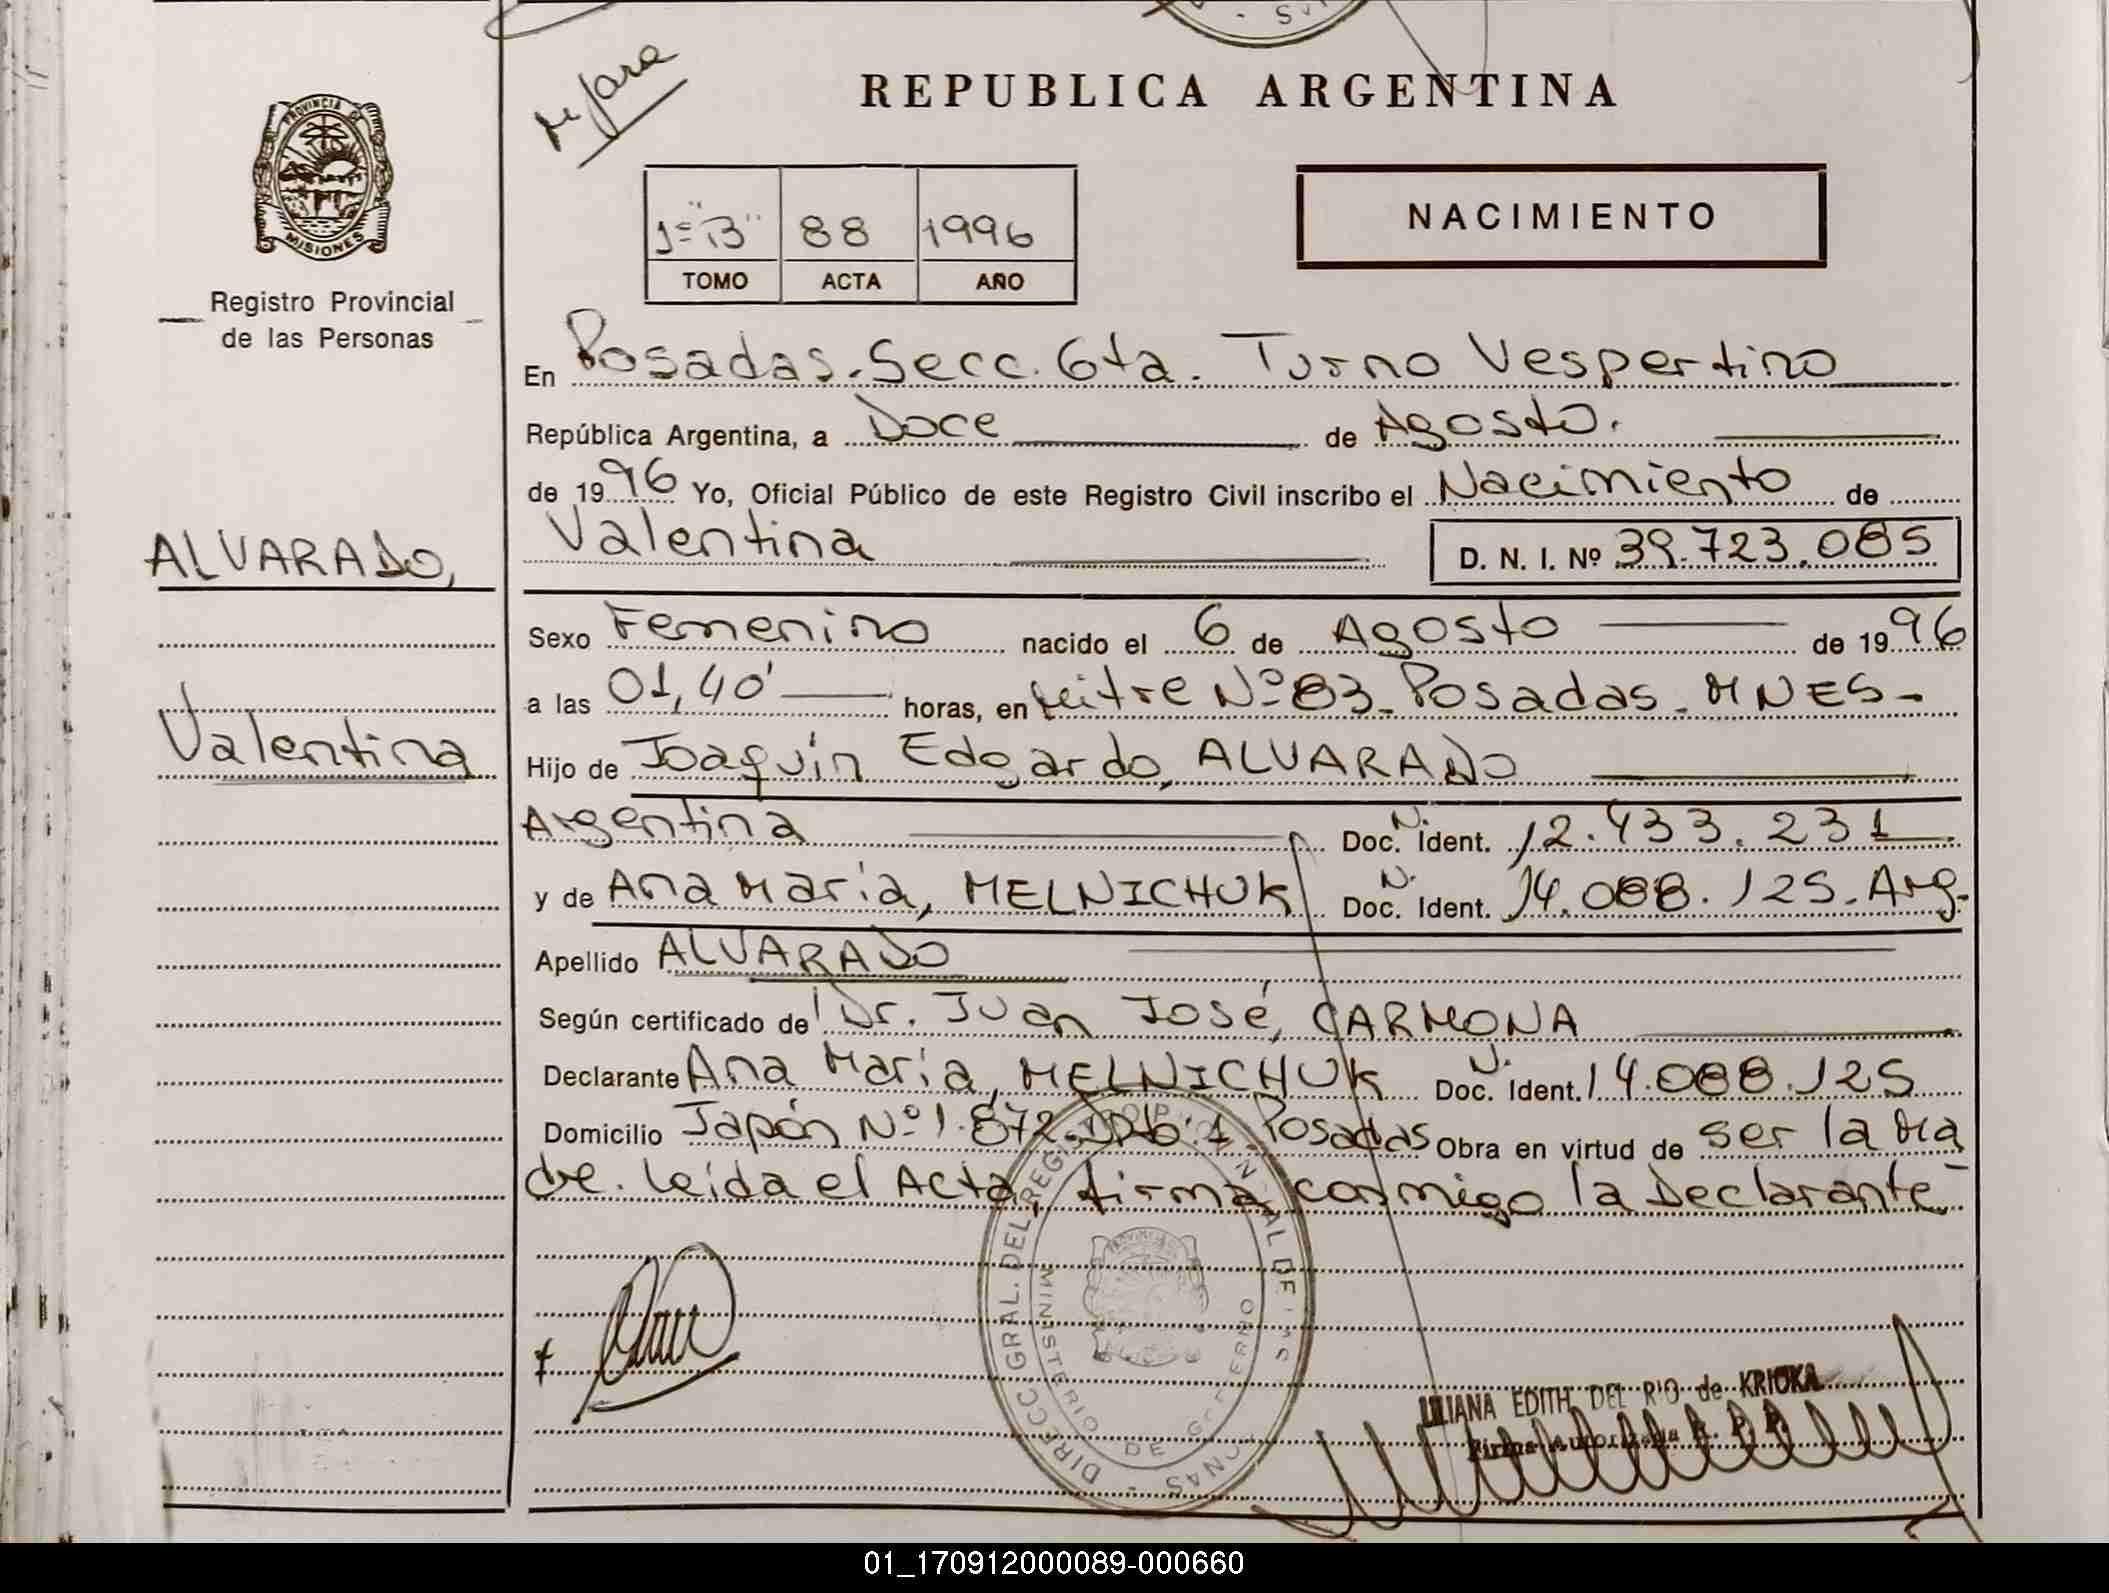 REPUBLICA ARGENTINA
PROVINCIA DE
MISIONES
Registro Provincial
de las Personas
1= "B" 88 1996
TOMO ACTA AÑO
NACIMIENTO
En Posadas. Secc. 6ta. Turno Vespertino
República Argentina, a Doce de Agosto.
de 1996 Yo, Oficial Público de este Registro Civil inscribo el Nacimiento de
Valentina D. N. I. Nº 39.723.085
ALVARADO,
Valentina
Sexo Femenino nacido el 6 de Agosto de 1996
a las 01,40' horas, en Mitre Nº 83. Posadas. MNES-
Hijo de Joaquín Edgardo, ALVARADO
Argentina Doc. N. Ident. 12.433.231
y de Ana María, MELNICHUK Doc. N. Ident. 14.088.125. Arg.
Apellido ALVARADO
Según certificado de Dr. Juan José, CARMONA
Declarante Ana María, MELNICHUK Doc. N. Ident. 14.088.125
Domicilio Japón Nº 1.872. Posadas Obra en virtud de ser la Ma
dre. Leída el Acta, firma conmigo la Declarante-
DIRECC. GRAL. DEL REGISTRO
MINISTERIO DE GOBIERNO
LILIANA EDITH DEL RIO de
Firma Autorizada R. P. P.
01_170912000089-000660